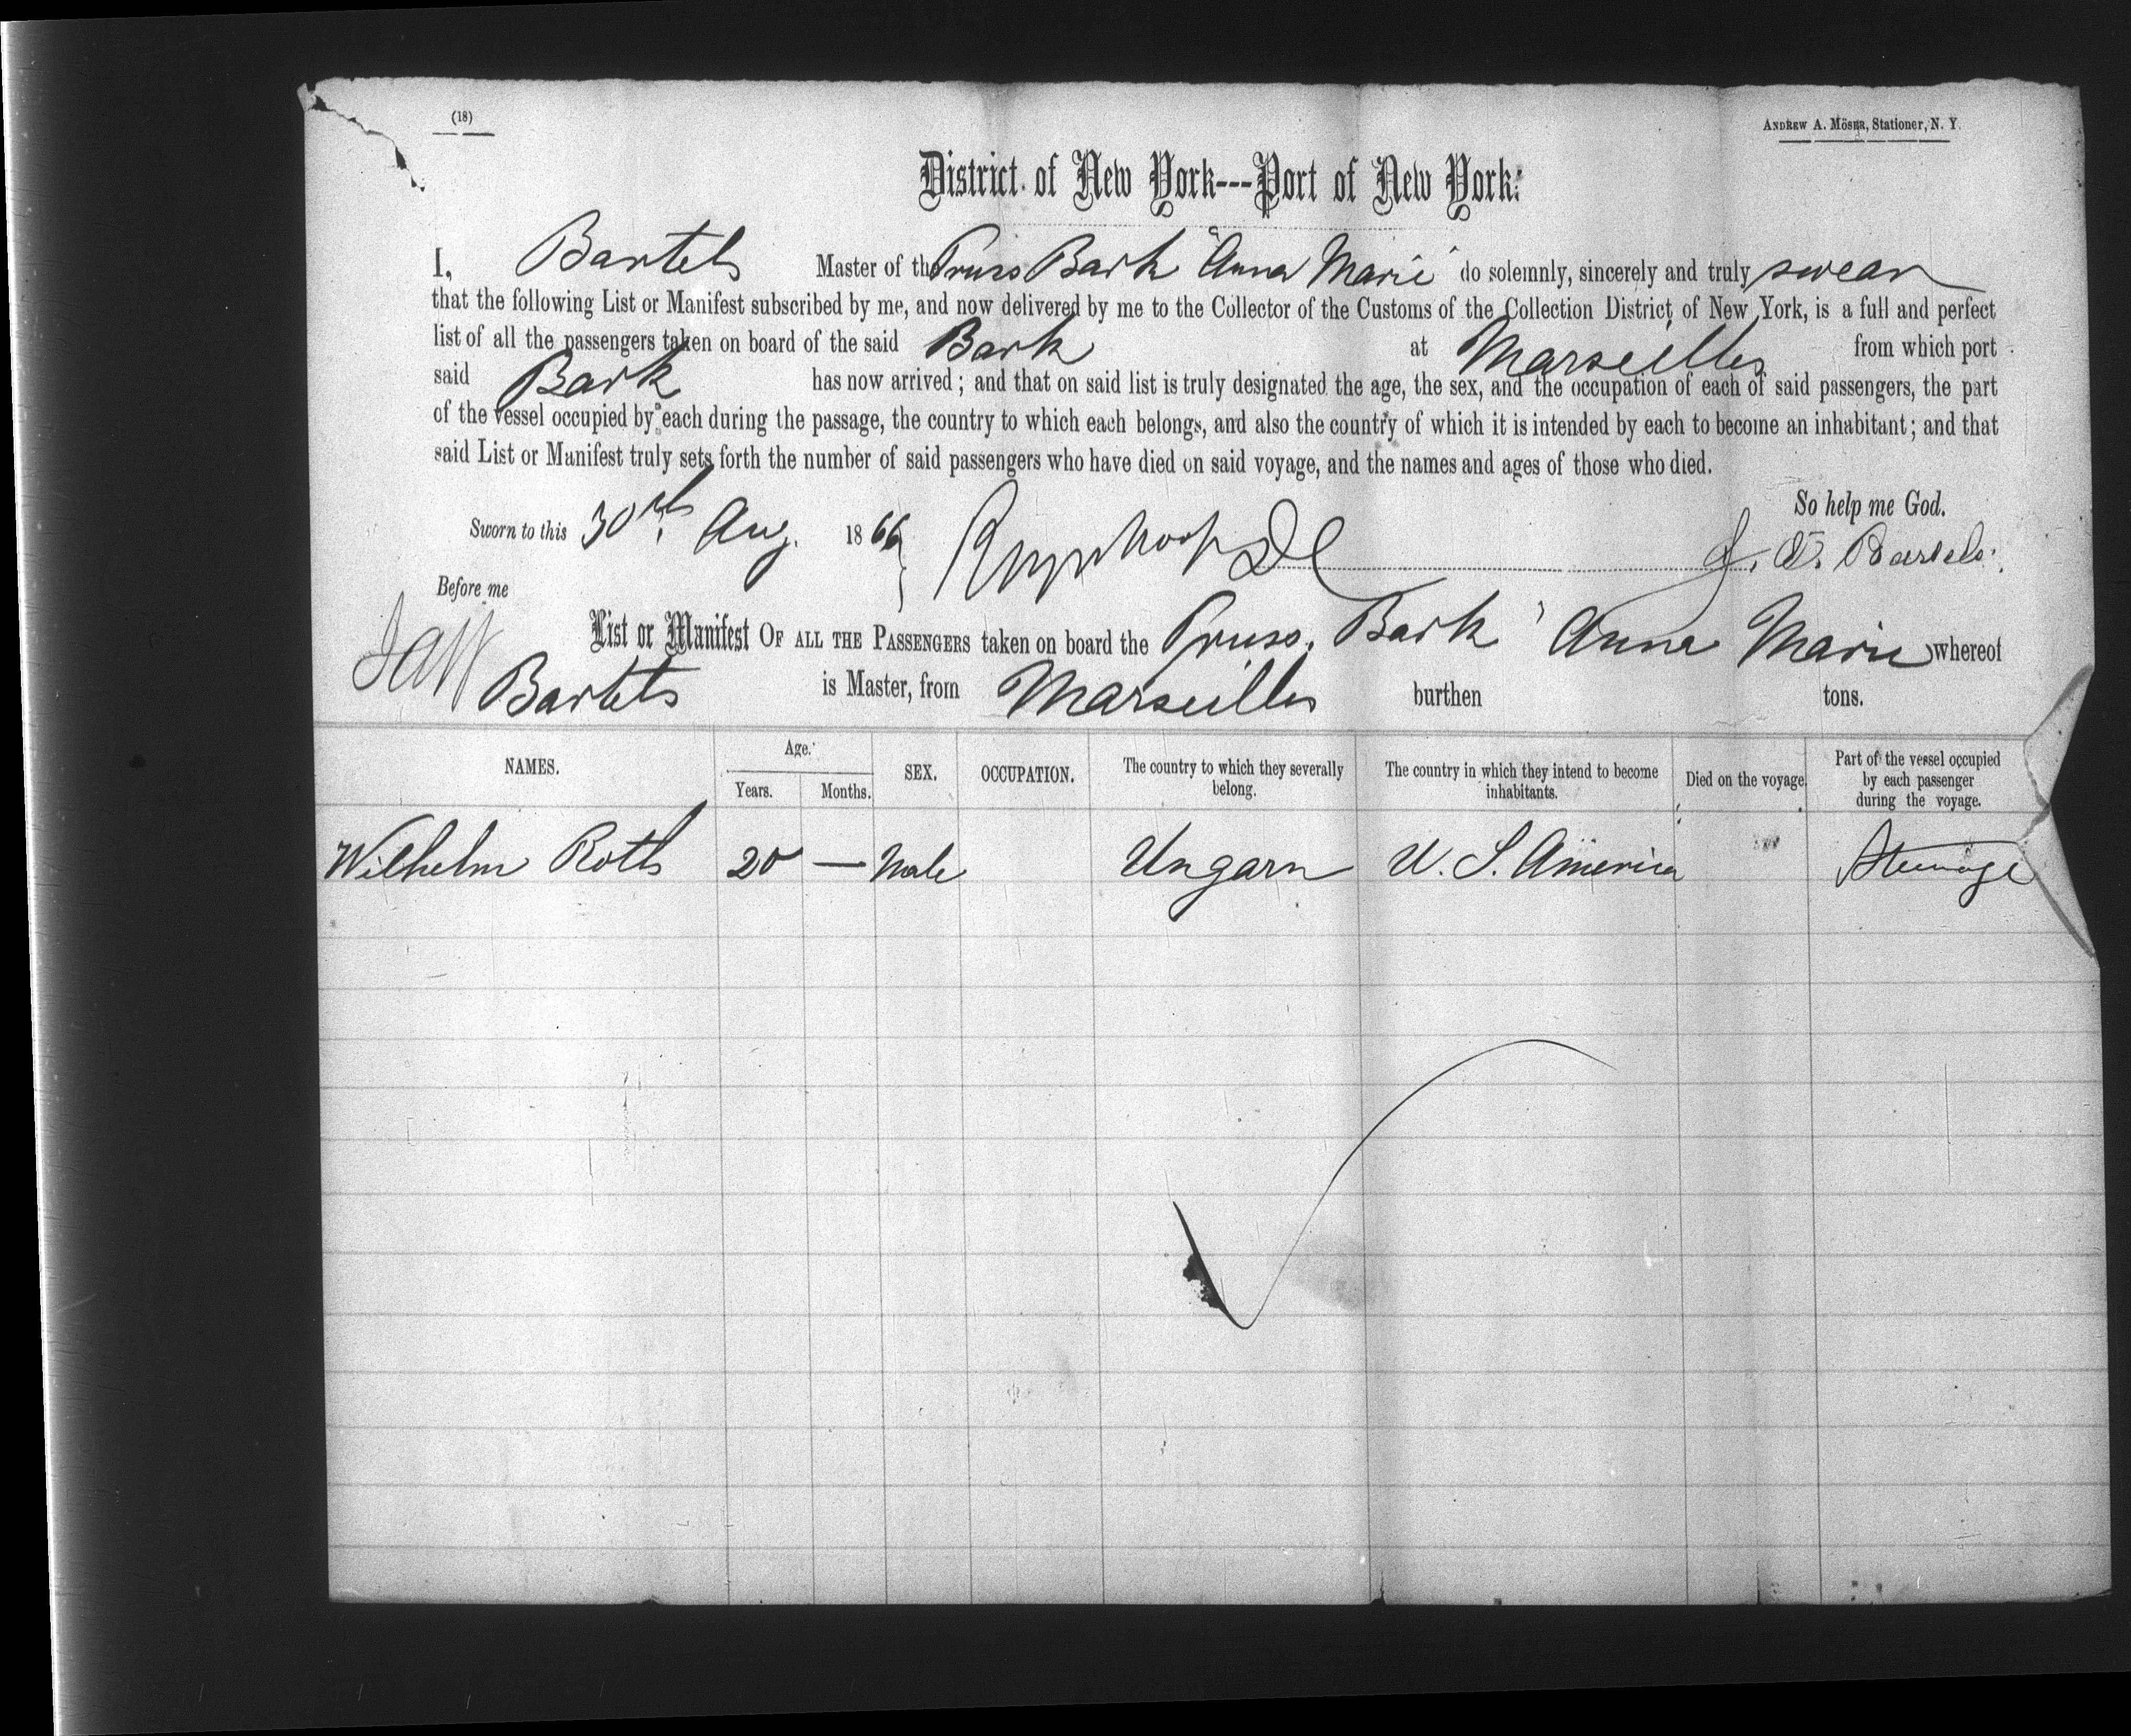 (18)
ANDREW A. MÖSER, Stationer, N. Y.
District of New York---Port of New York:
I, Bartels Master of the Pruss Bark "Anna Marie" do solemnly, sincerely and truly swear
that the following List or Manifest subscribed by me, and now delivered by me to the Collector of the Customs of the Collection District of New York, is a full and perfect
list of all the passengers taken on board of the said Bark at Marseilles from which port
said Bark has now arrived; and that on said list is truly designated the age, the sex, and the occupation of each of said passengers, the part
of the vessel occupied by each during the passage, the country to which each belongs, and also the country of which it is intended by each to become an inhabitant; and that
said List or Manifest truly sets forth the number of said passengers who have died on said voyage, and the names and ages of those who died.
So help me God.
Sworn to this 30th Aug. 1866 Bartels
Before me
List or Manifest OF ALL THE PASSENGERS taken on board the Pruss. Bark "Anna Marie whereof
Bartels is Master, from Marseilles burthen tons.
NAMES. Age. Years. Months. SEX. OCCUPATION. The country to which they severally belong. The country in which they intend to become inhabitants. Died on the voyage. Part of the vessel occupied by each passenger during the voyage.
Wilhelm Roth 20 — Male Ungarn U. S. America Steerage